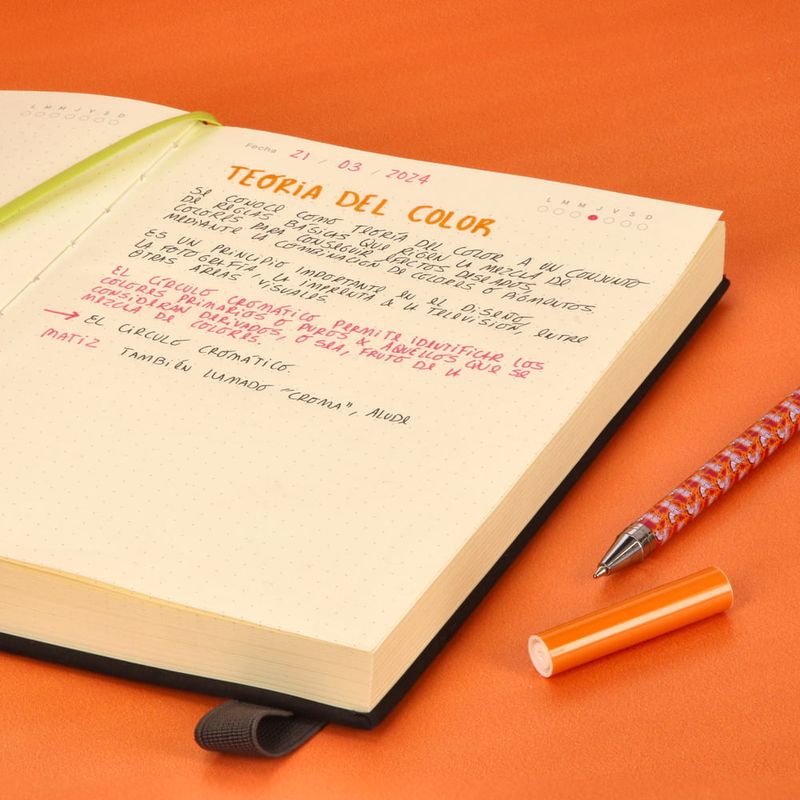 L M M J V S D
Fecha 21 / 03 / 2024
L M M J V S D
TEORIA DEL COLOR
SE CONOCE COMO TEORÍA DEL COLOR A UN CONJUNTO
DE REGLAS BÁSICAS QUE RIGEN LA MEZCLA DE
COLORES PARA CONSEGUIR EFECTOS DESEADOS
MEDIANTE LA COMBINACIÓN DE COLORES O PIGMENTOS.
ES UN PRINCIPIO IMPORTANTE EN EL DISEÑO,
LA FOTOGRAFÍA, LA IMPRENTA & LA TELEVISIÓN, ENTRE
OTRAS ÁREAS VISUALES.
EL CÍRCULO CROMÁTICO PERMITE IDENTIFICAR LOS
COLORES PRIMARIOS O PUROS & AQUELLOS QUE SE
CONSIDERAN DERIVADOS, O SEA, FRUTO DE LA
MEZCLA DE COLORES.
→ EL CÍRCULO CROMÁTICO.
MATIZ TAMBIÉN LLAMADO "CROMA", ALUDE